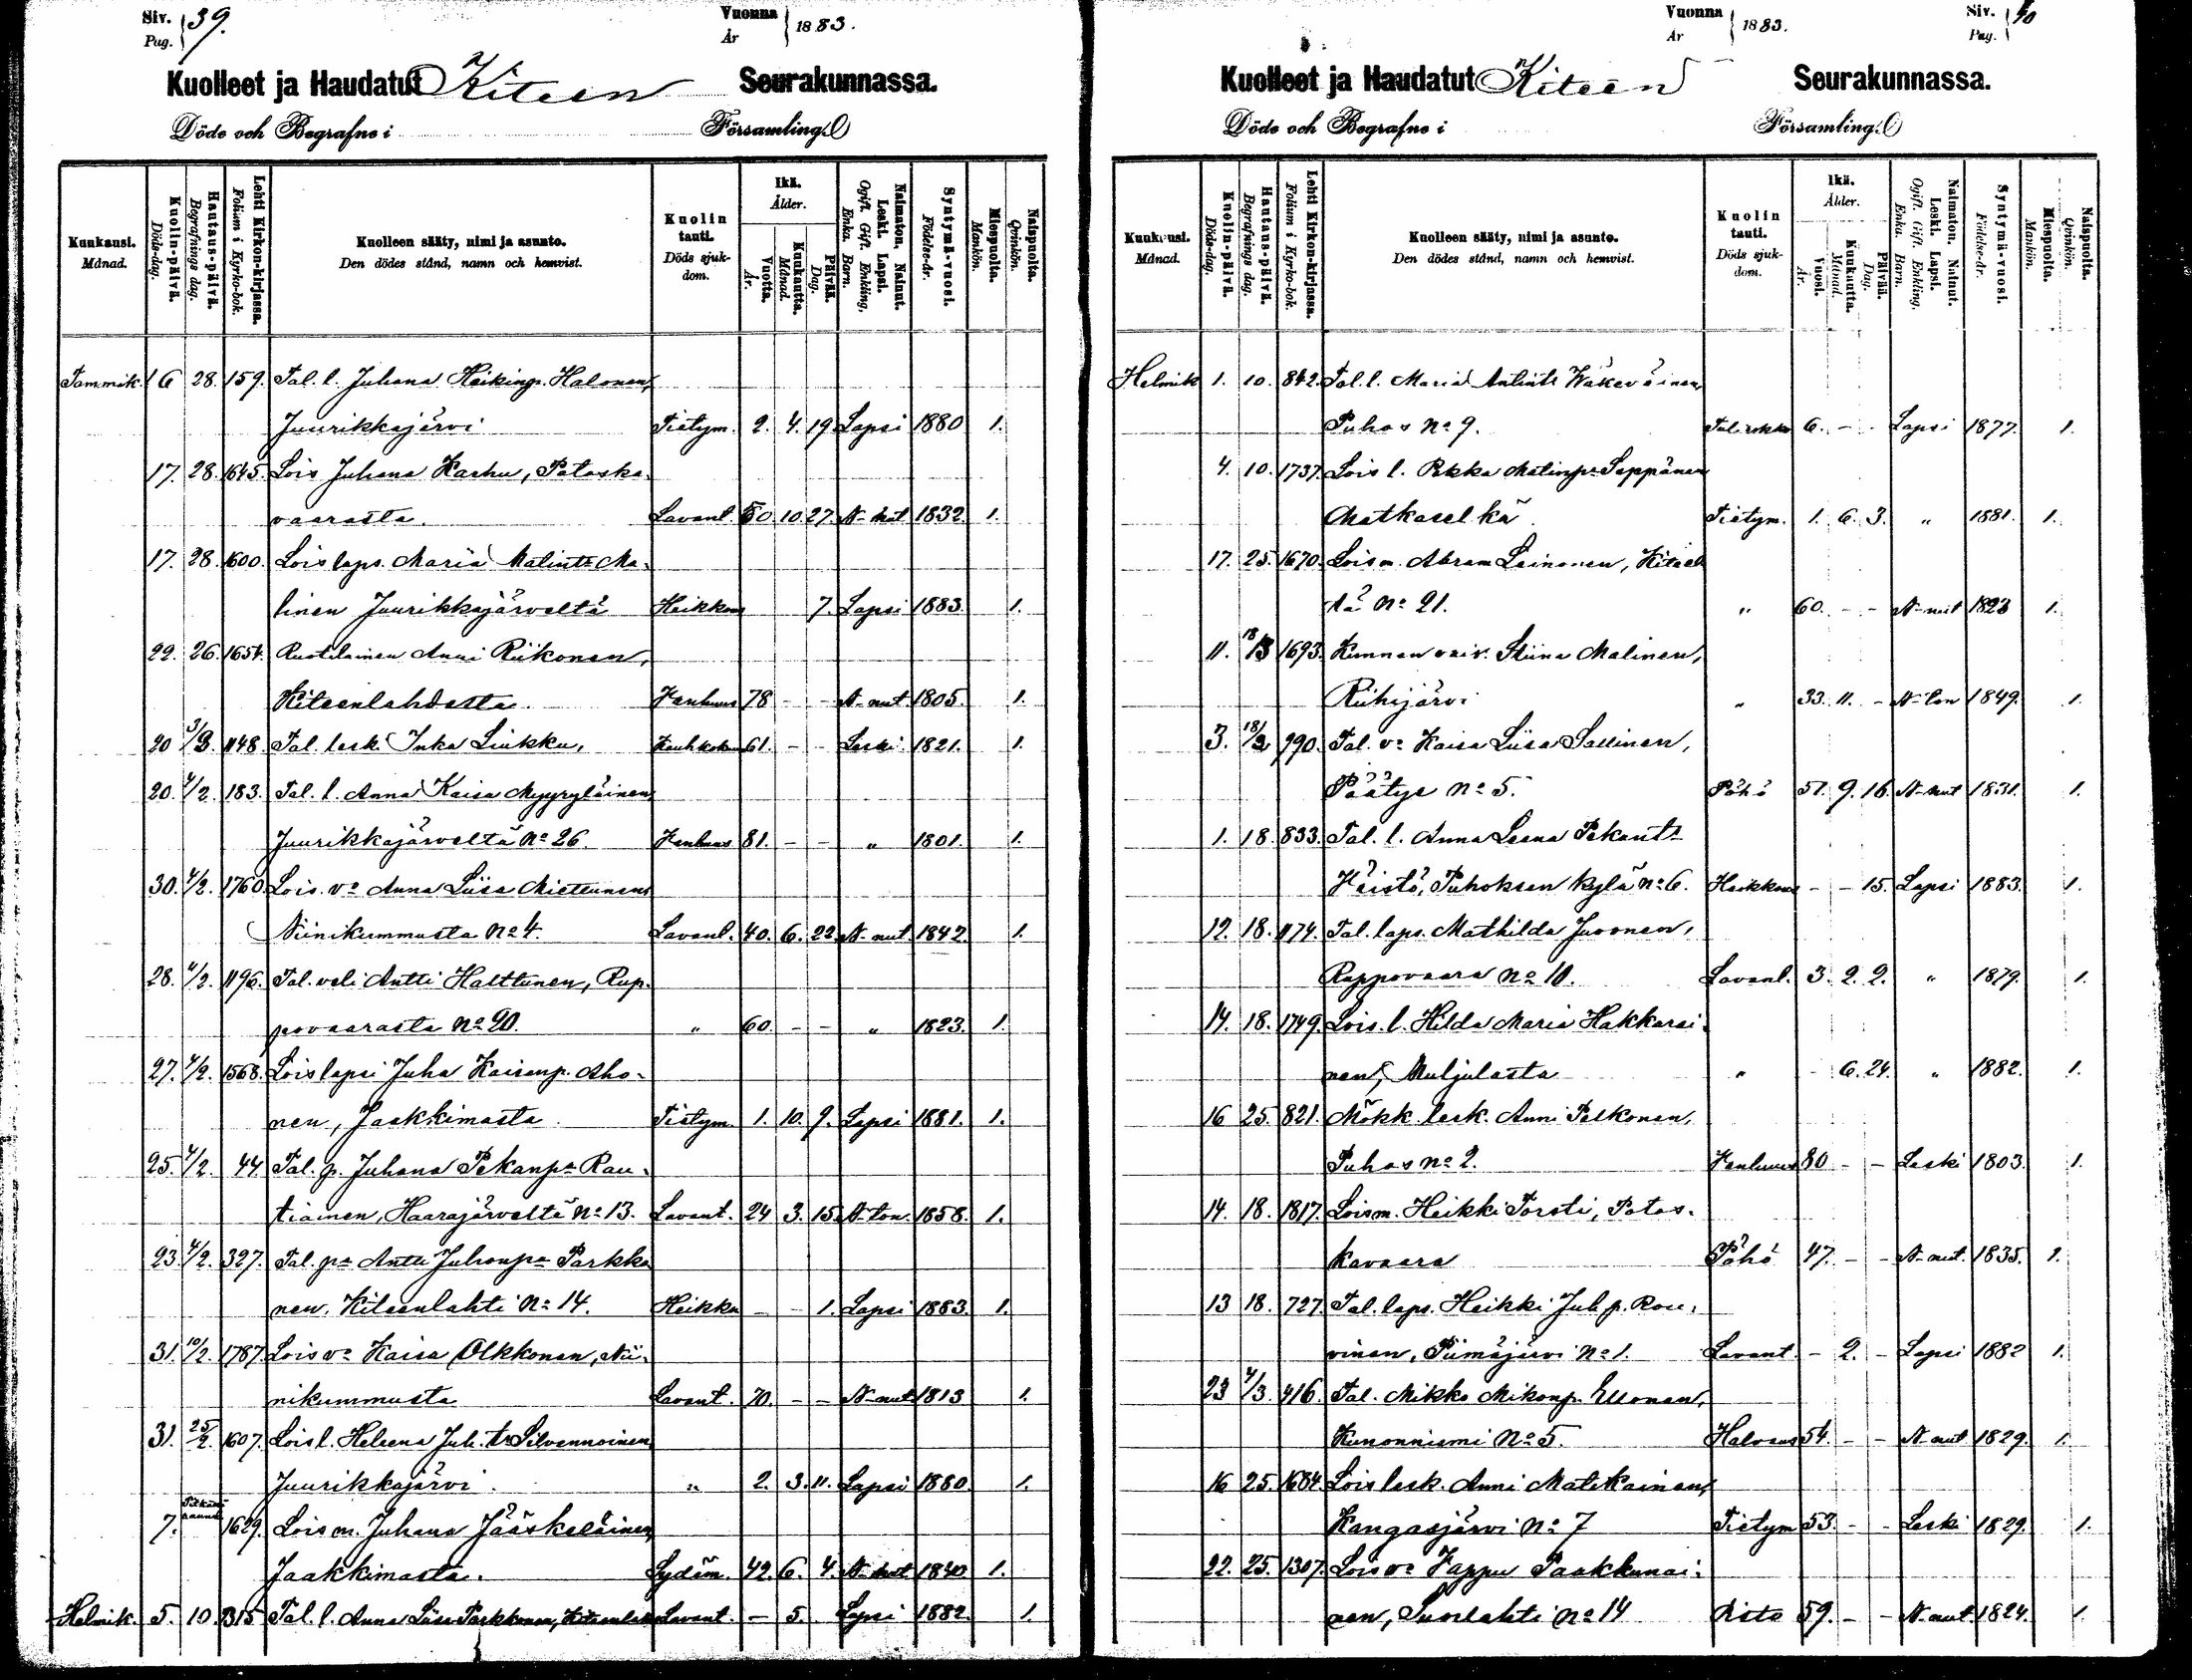 Siv. 39.
Pag.
Vuonna 1883.
År
Kuolleet ja Haudatut Kiteen Seurakunnassa.
Döde och Begrafne i Församling.
Kuukausi. Månad.
Kuolin-päivä. Döds-dag.
Hautaus-päivä. Begrafnings dag.
Lehti Kirkon-kirjassa. Folium i Kyrko-bok.
Kuolleen sääty, nimi ja asunto. Den dödes stånd, namn och hemvist.
Kuolin tauti. Döds sjukdom.
Ikä. Ålder.
Vuotta. År.
Kuukautta. Månad.
Päivää. Dag.
Naimaton. Nainut. Leski. Lapsi. Ogift. Gift. Enkling, Enka. Barn.
Syntymä-vuosi. Födelse-år.
Miespuolta. Mankön.
Naispuolta. Qvinkön.
Tammik. 16 28. 159. Tal. l. Juhana Heikinp. Halonen,
Juurikkajärvi Tistym. 2. 4. 19. Lapsi 1880 1.
17. 28. 1645. Lois Juhana Karhu, Potoska
vaarasta. Lavant. 50. 10. 27. N-nut 1832. 1.
17. 28. 1600. Lois laps. Maria Matintr Ma-
linen Juurikkajärveltä Heikkous 7. Lapsi 1883. 1.
22. 26. 1654. Ruotilainen Anni Riikonen,
Kiteenlahdesta. Vanhuus 78 - - N-nut 1805. 1.
20 3/3. 1148. Tal. lesk. Inka Liukku, 61. - - Leski 1821. 1.
20. 4/2. 183. Tal. l. Anna Kaisa Myyryläinen,
Juurikkajärveltä No 26. Vanhuus 81. - - " 1801. 1.
30. 4/2. 1760. Lois. vo Anna Liisa Miettunen,
Niinikummusta No 4. Lavant. 40. 6. 22 N-nut 1842. 1.
28. 4/2. 1196. Tal. veli Antti Halttunen, Rup-
povaarasta No 20. " 60. - - " 1823. 1.
27. 4/2. 1568. Lois lapsi Juha Kaisanp. Aho-
nen, Jaakkimasta. Tistym. 1. 10. 9. Lapsi 1881. 1.
25. 4/2. 44. Tal. p. Juhana Pekanpa Rau-
tiainen, Haarajärveltä No 13. Lavant. 24 3. 15. N-ton. 1858. 1.
23. 4/2. 327. Tal. pa Antti Juhonpa Parkko
nen, Kiteenlahti No 14. Heikko - - 1. Lapsi 1883. 1.
31. 10/2. 1787. Lois vo Kaisa Olkkonen, Nii-
nikummusta Lavant. 70. - - N-nut 1813 1.
31. 25/2. 1607. Lois l. Heleena Juh. tr Silvennoinen,
Juurikkajärvi. " 2. 3. 11. Lapsi 1880. 1.
7. 1629. Lois m. Juhana Jääskeläinen,
Jaakkimasta. Sydän. 42. 6. 4. N-nut 1840 1.
Helmik. 5. 10. 1315 Tal. l. Anna Liisa Parkkonen, Lavant. - 5. Lapsi 1882. 1
Vuonna 1883.
År
Siv. 40
Pag.
Kuolleet ja Haudatut Kiteen Seurakunnassa.
Döde och Begrafne i Församling.
Kuukausi. Månad.
Kuolin-päivä. Döds-dag.
Hautaus-päivä. Begrafnings dag.
Lehti Kirkon-kirjassa. Folium i Kyrko-bok.
Kuolleen sääty, nimi ja asunto. Den dödes stånd, namn och hemvist.
Kuolin tauti. Döds sjukdom.
Ikä. Ålder.
Vuosi. År.
Kuukautta. Månad.
Päivää. Dag.
Naimaton. Nainut. Leski. Lapsi. Ogift. Gift. Enkling, Enka. Barn.
Syntymä-vuosi. Födelse-år.
Miespuolta. Mankön.
Naispuolta. Qvinkön.
Helmik 1. 10. 842. Tal. l. Maria Antintr Wäkeväinen,
Puhos No 9. Tulirokko 6. - - Lapsi 1877. 1.
4. 10. 1737. Lois l. Pekka Matinpa Seppänen
Matkaselkä Tistym. 1. 6. 3. " 1881. 1.
17. 25. 1670. Lois m. Abram Leinonen, Kiteel
tä No 21. " 60. - - N-nut 1823 1.
11. 18/3 1693. Kunnan vaiv. Stiina Malinen,
Riihijärvi " 33. 11. - N-ton 1849. 1.
3. 18/2 990. Tal. vo Kaisa Liisa Sallinen,
Päätye No 5. Pöhö 51. 9. 16. N-nut 1831. 1.
1. 18. 833. Tal. l. Anna Leena Pekantr
Häistö, Puhoksen kylä No 6. Heikkous - - 15. Lapsi 1883. 1.
12. 18. 1174. Tal. laps. Mathilda Juvonen,
Ruppovaara No 10. Lavant. 3. 2. 2. " 1879. 1.
14. 18. 1749. Lois. l. Hilda Maria Hakkarai-
nen, Muljulasta " - 6. 24. " 1882. 1.
16 25. 821. Mökk. lesk. Anni Pelkonen,
Puhos No 2. Vanhuus 80 - - Leski 1803. 1.
14. 18. 1817. Lois m. Heikki Torsti, Potos-
kavaara Pöhö 47. - - N-nut. 1835. 1.
13 18. 727. Tal. laps. Heikki Juh. p. Rou-
vinen, Piimäjärvi No 1. Lavant. - 2. - Lapsi 1882 1.
23 4/3. 416. Tal. Mikko Mikonp. Ellonen,
Kunonniemi No 5. Halvaus 54. - - N-nut 1829. 1.
16 25. 1684. Lois lesk. Anni Matikainen,
Kangasjärvi No 7 Tistym 53. - - Leski 1829. 1.
22. 25. 1307. Lois vo Vappu Paakkunai-
nen, Suorlahti No 14 Risto 59. - - N-nut. 1824. 1.